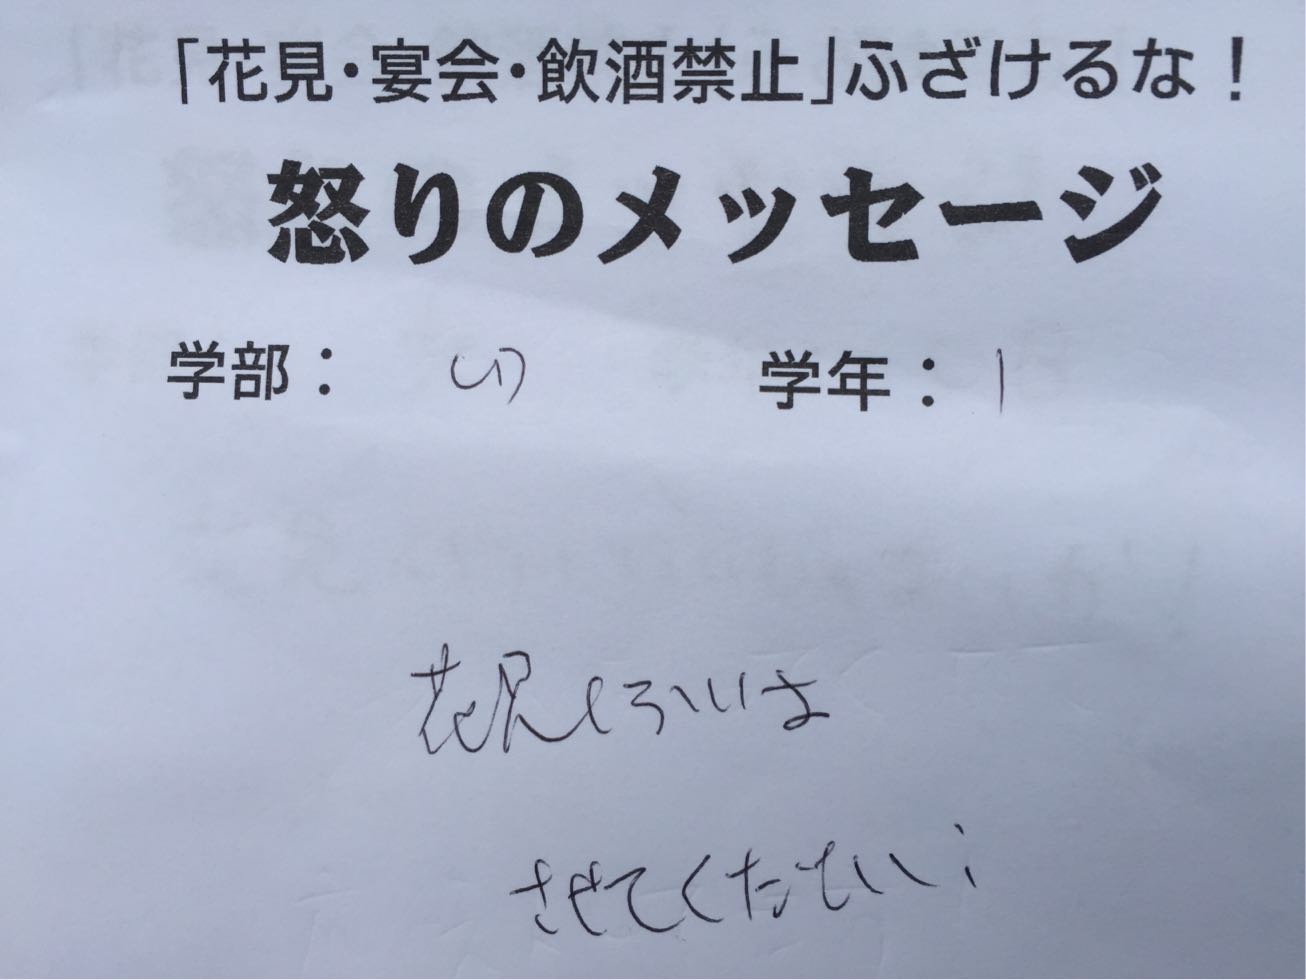 「花見・宴会・飲酒禁止」ふざけるな！
怒りのメッセージ
学部： 学年：1
花見くらいは
させてください!